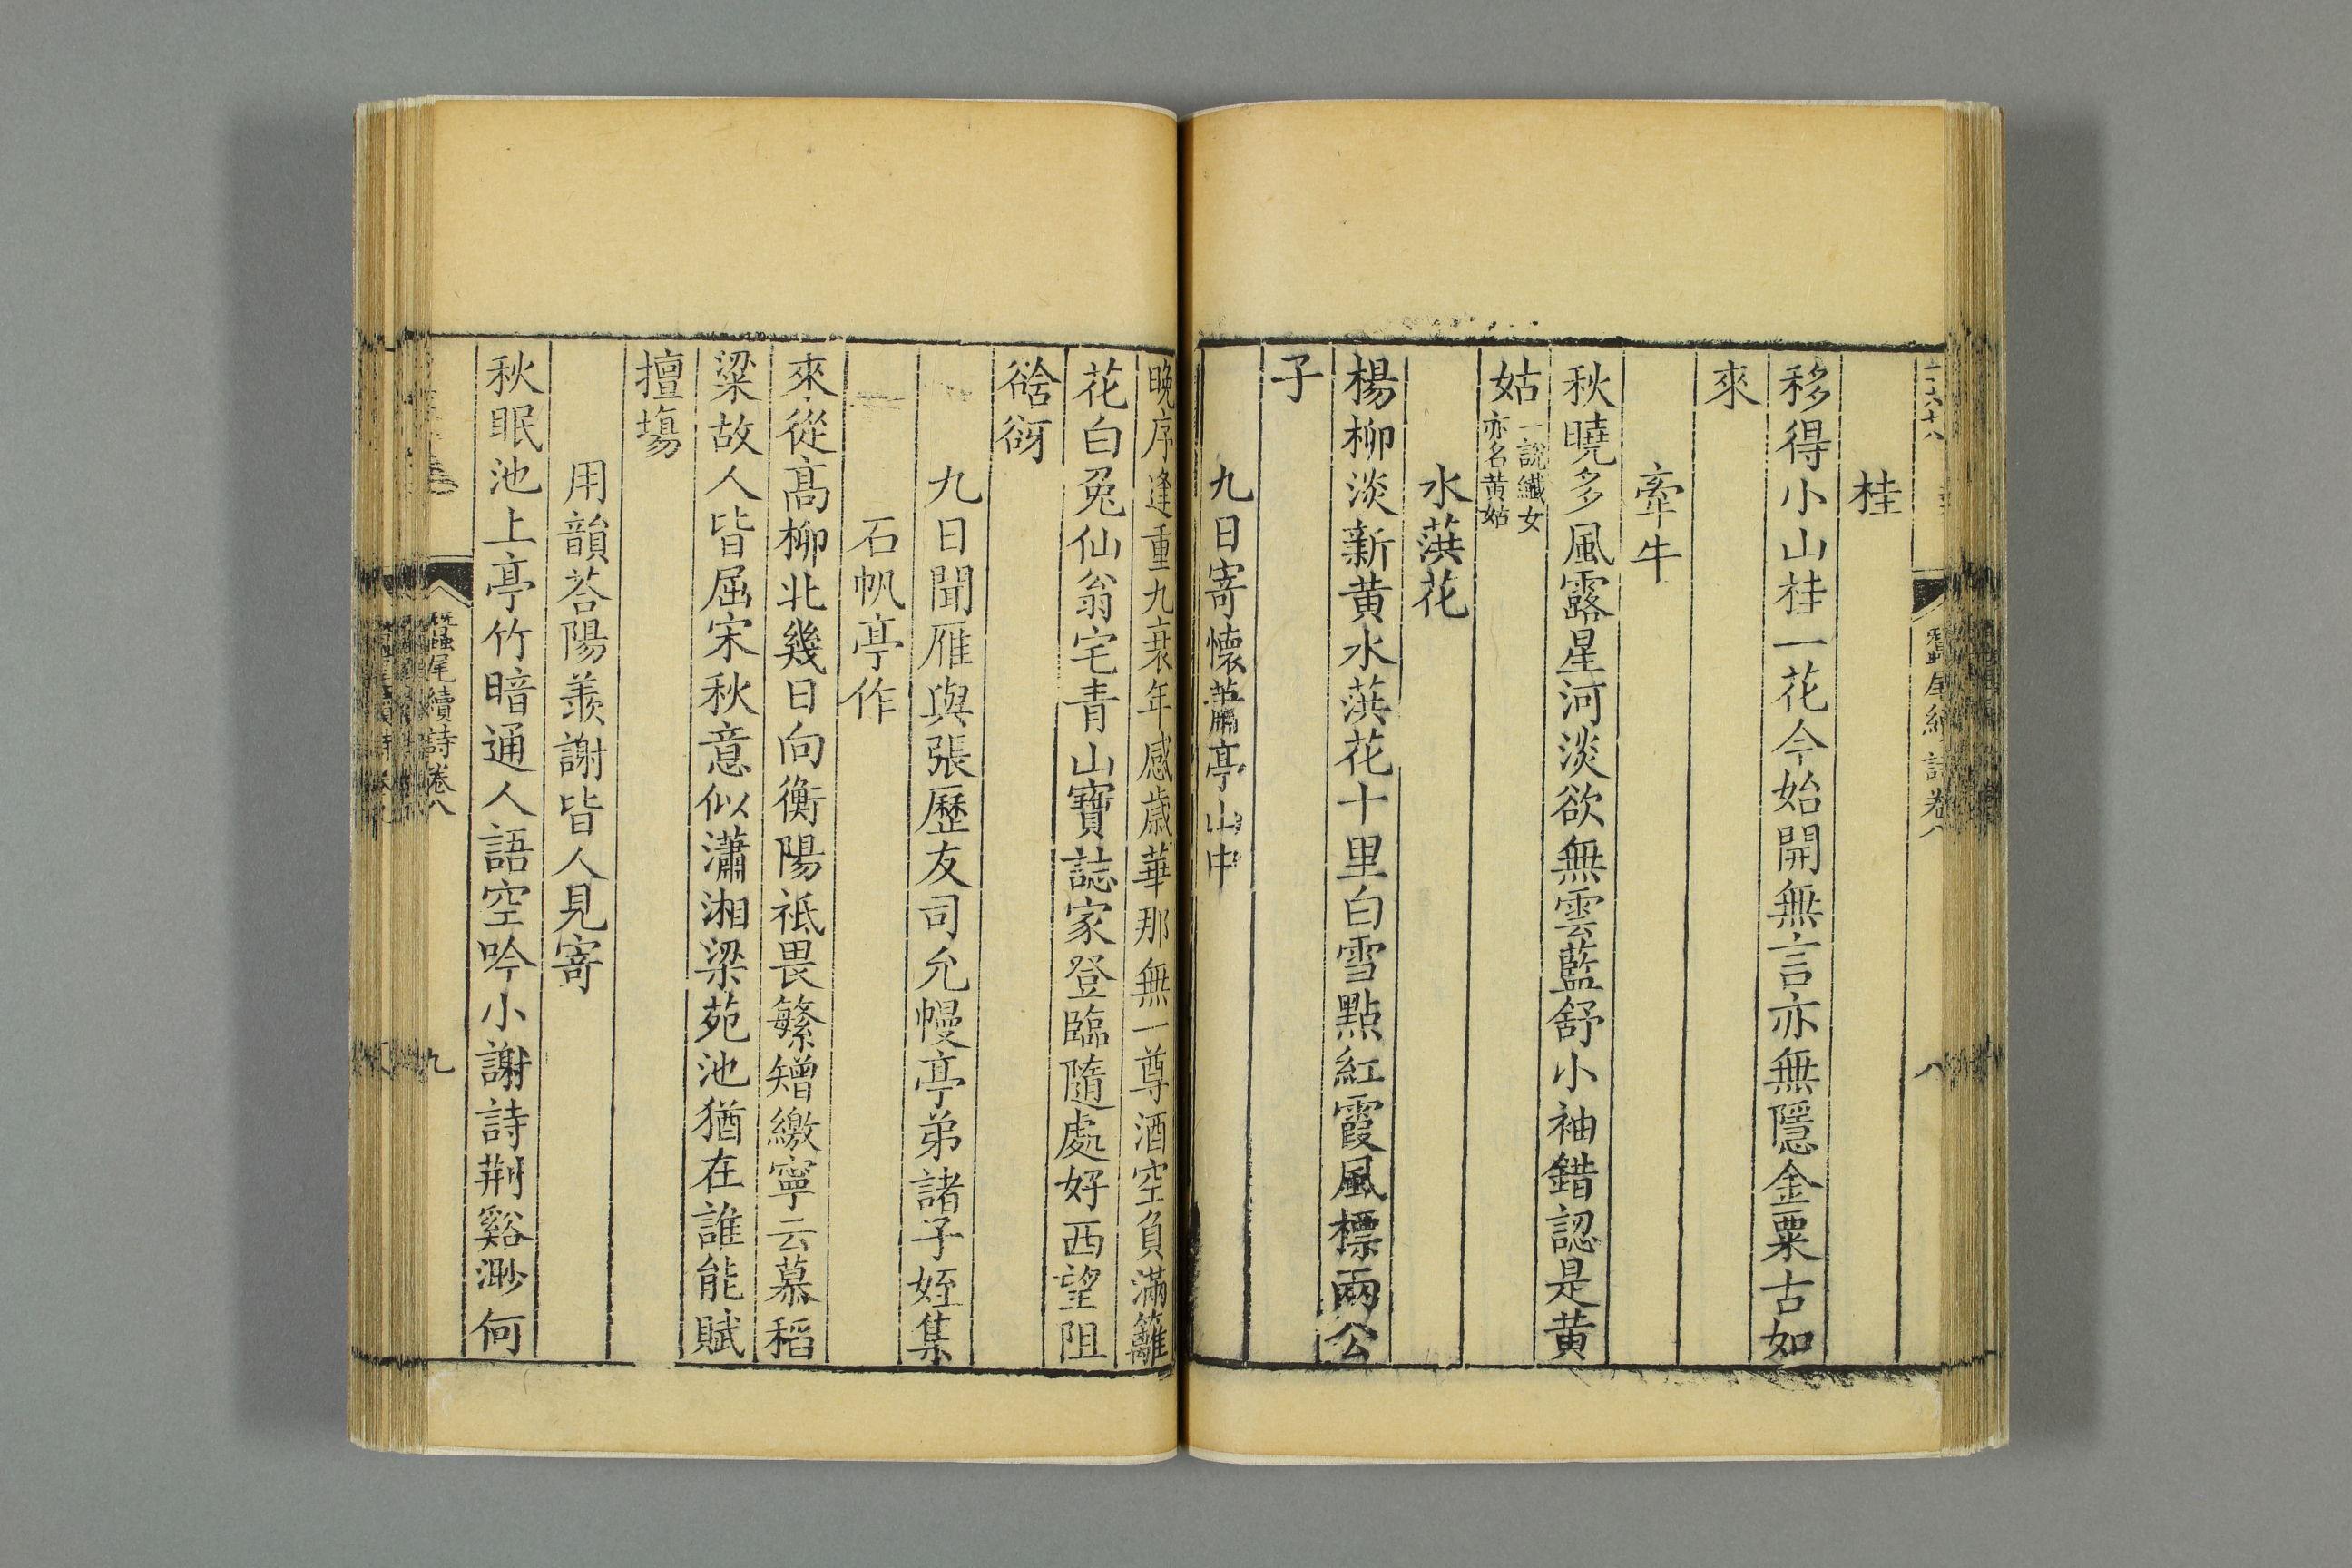 桂
移得小山桂一花今始開無言亦無隱金粟古如
來
牽牛
秋曉多風露星河淡欲無雲藍舒小袖錯認是黄
姑一說織女亦名黄姑
水葓花
楊柳淡新黄水葓花十里白雪點紅霞風標兩公
子
九日寄懷蕭亭山中
晚序逢重九衰年感歲華那無一尊酒空負滿籬
花白兔仙翁宅青山寶誌家登臨隨處好西望阻
谽谺
九日聞雁與張歷友司允幔亭弟諸子姪集
石帆亭作
來從髙柳北幾日向衡陽祗畏繁矰繳寧云慕稻
粱故人皆屈宋秋意似瀟湘梁苑池猶在誰能賦
擅塲
用韻荅陽羨謝皆人見寄
秋眠池上亭竹暗通人語空吟小謝詩荆谿渺何
蠶尾續詩卷八
九